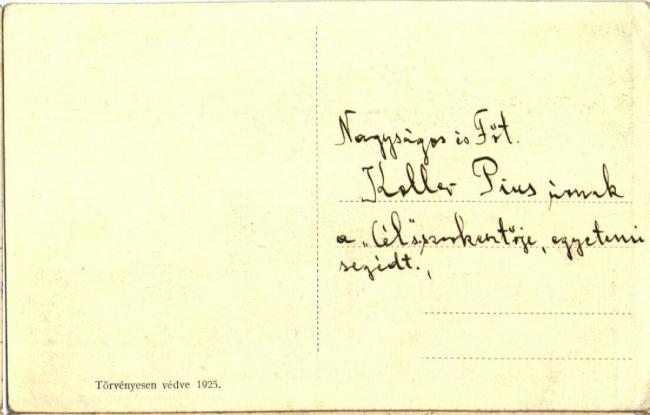 Nagyságos és Főt.
Koller Pius úrnak
a „Cél” szerkesztője, egyetemi
segédt.,
Törvényesen védve 1925.